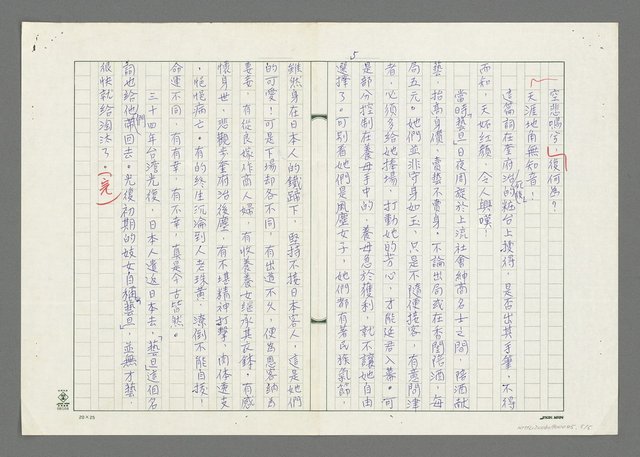 5
空悲鳴兮復何為？
天涯地角無知音！
這篇詞在奎府治的粧台上搜得，是否出其手筆，不得
而知，天妒紅顏，令人興嘆！
當時「藝旦」日夜周旋於上流社會紳商名士之間，陪酒獻
藝，抬高身價，賣藝不賣身。不論出局或在香閨陪酒，每
局五元。她們並非守身如玉，只是不隨便接客，有意問津
者，必須多給她捧場，打動她的芳心，才能延君入幕。可
是部分控制在養母手中的，養母急於獲利，就不讓她自由
選擇了。可別看她們是風塵女子，她們都有著民族氣節，
雖然身在日本人的鐵蹄下，堅持不接日本客人，這是她們
的可愛！可是下場却各不同，有出道不久，便為恩客納為
妻妾，有從良嫁作商人婦，有收養養女繼承其衣鉢，有感
懷身世，悲觀奎府治後塵，有不堪精神打擊，肉体連支
，悒悒病亡。有的終生沉淪到人老珠黃，潦倒不能自拔！
命運不同，有有幸，有不幸，真是今古皆然。
三十四年台灣光復，日本人遣返日本去，「藝旦」這個名
詞也給他們帶回去。光復初期的妓女自稱「藝旦」，並無才藝，
很快就給淘汰了。（完）
20×25